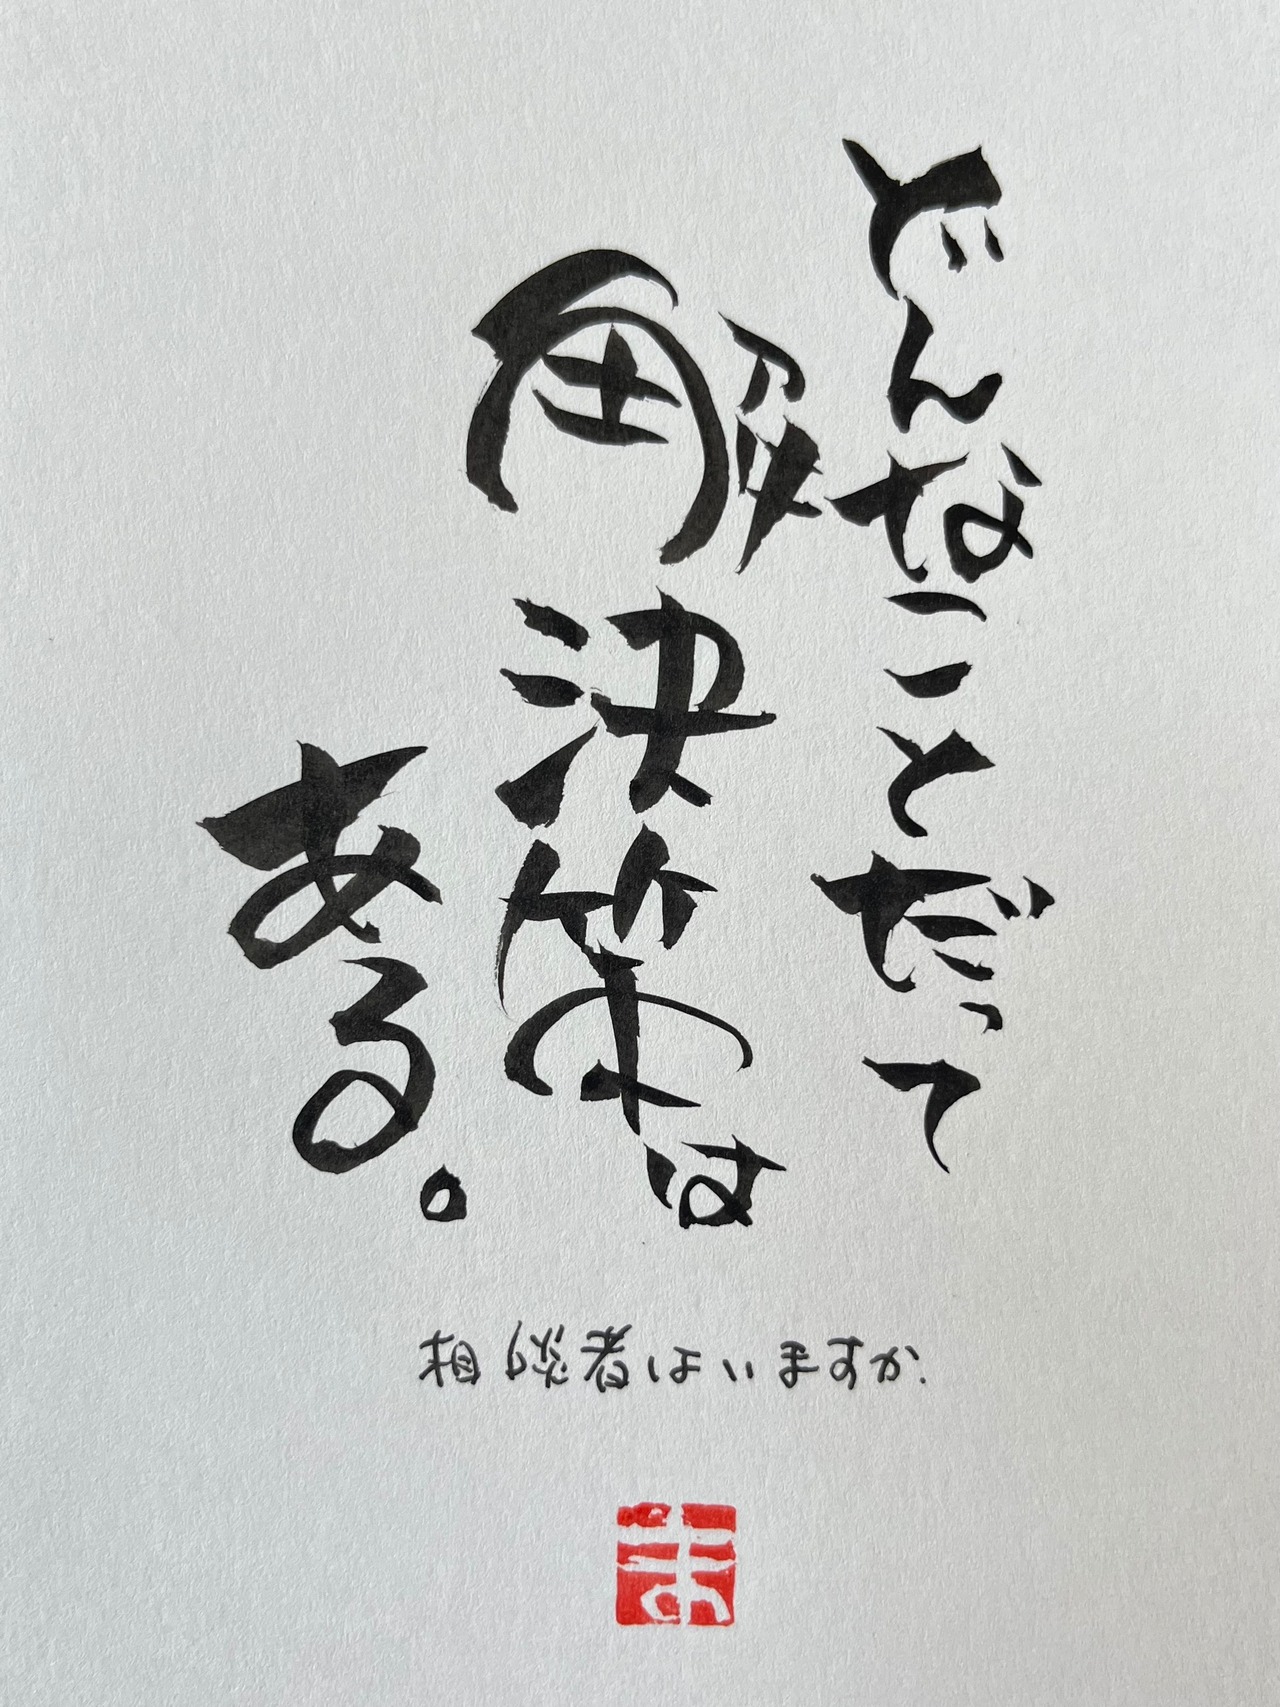 どんなことだって
解決策は
ある。
相談者はいますか.
ま